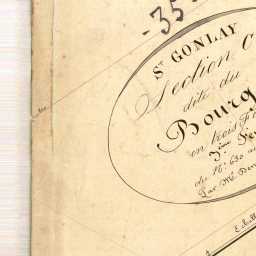 -35
St GONLAY
Section C
dite du
Bourg
en trois F
3me Fe
du No 630 au
Par Mr
Echelle